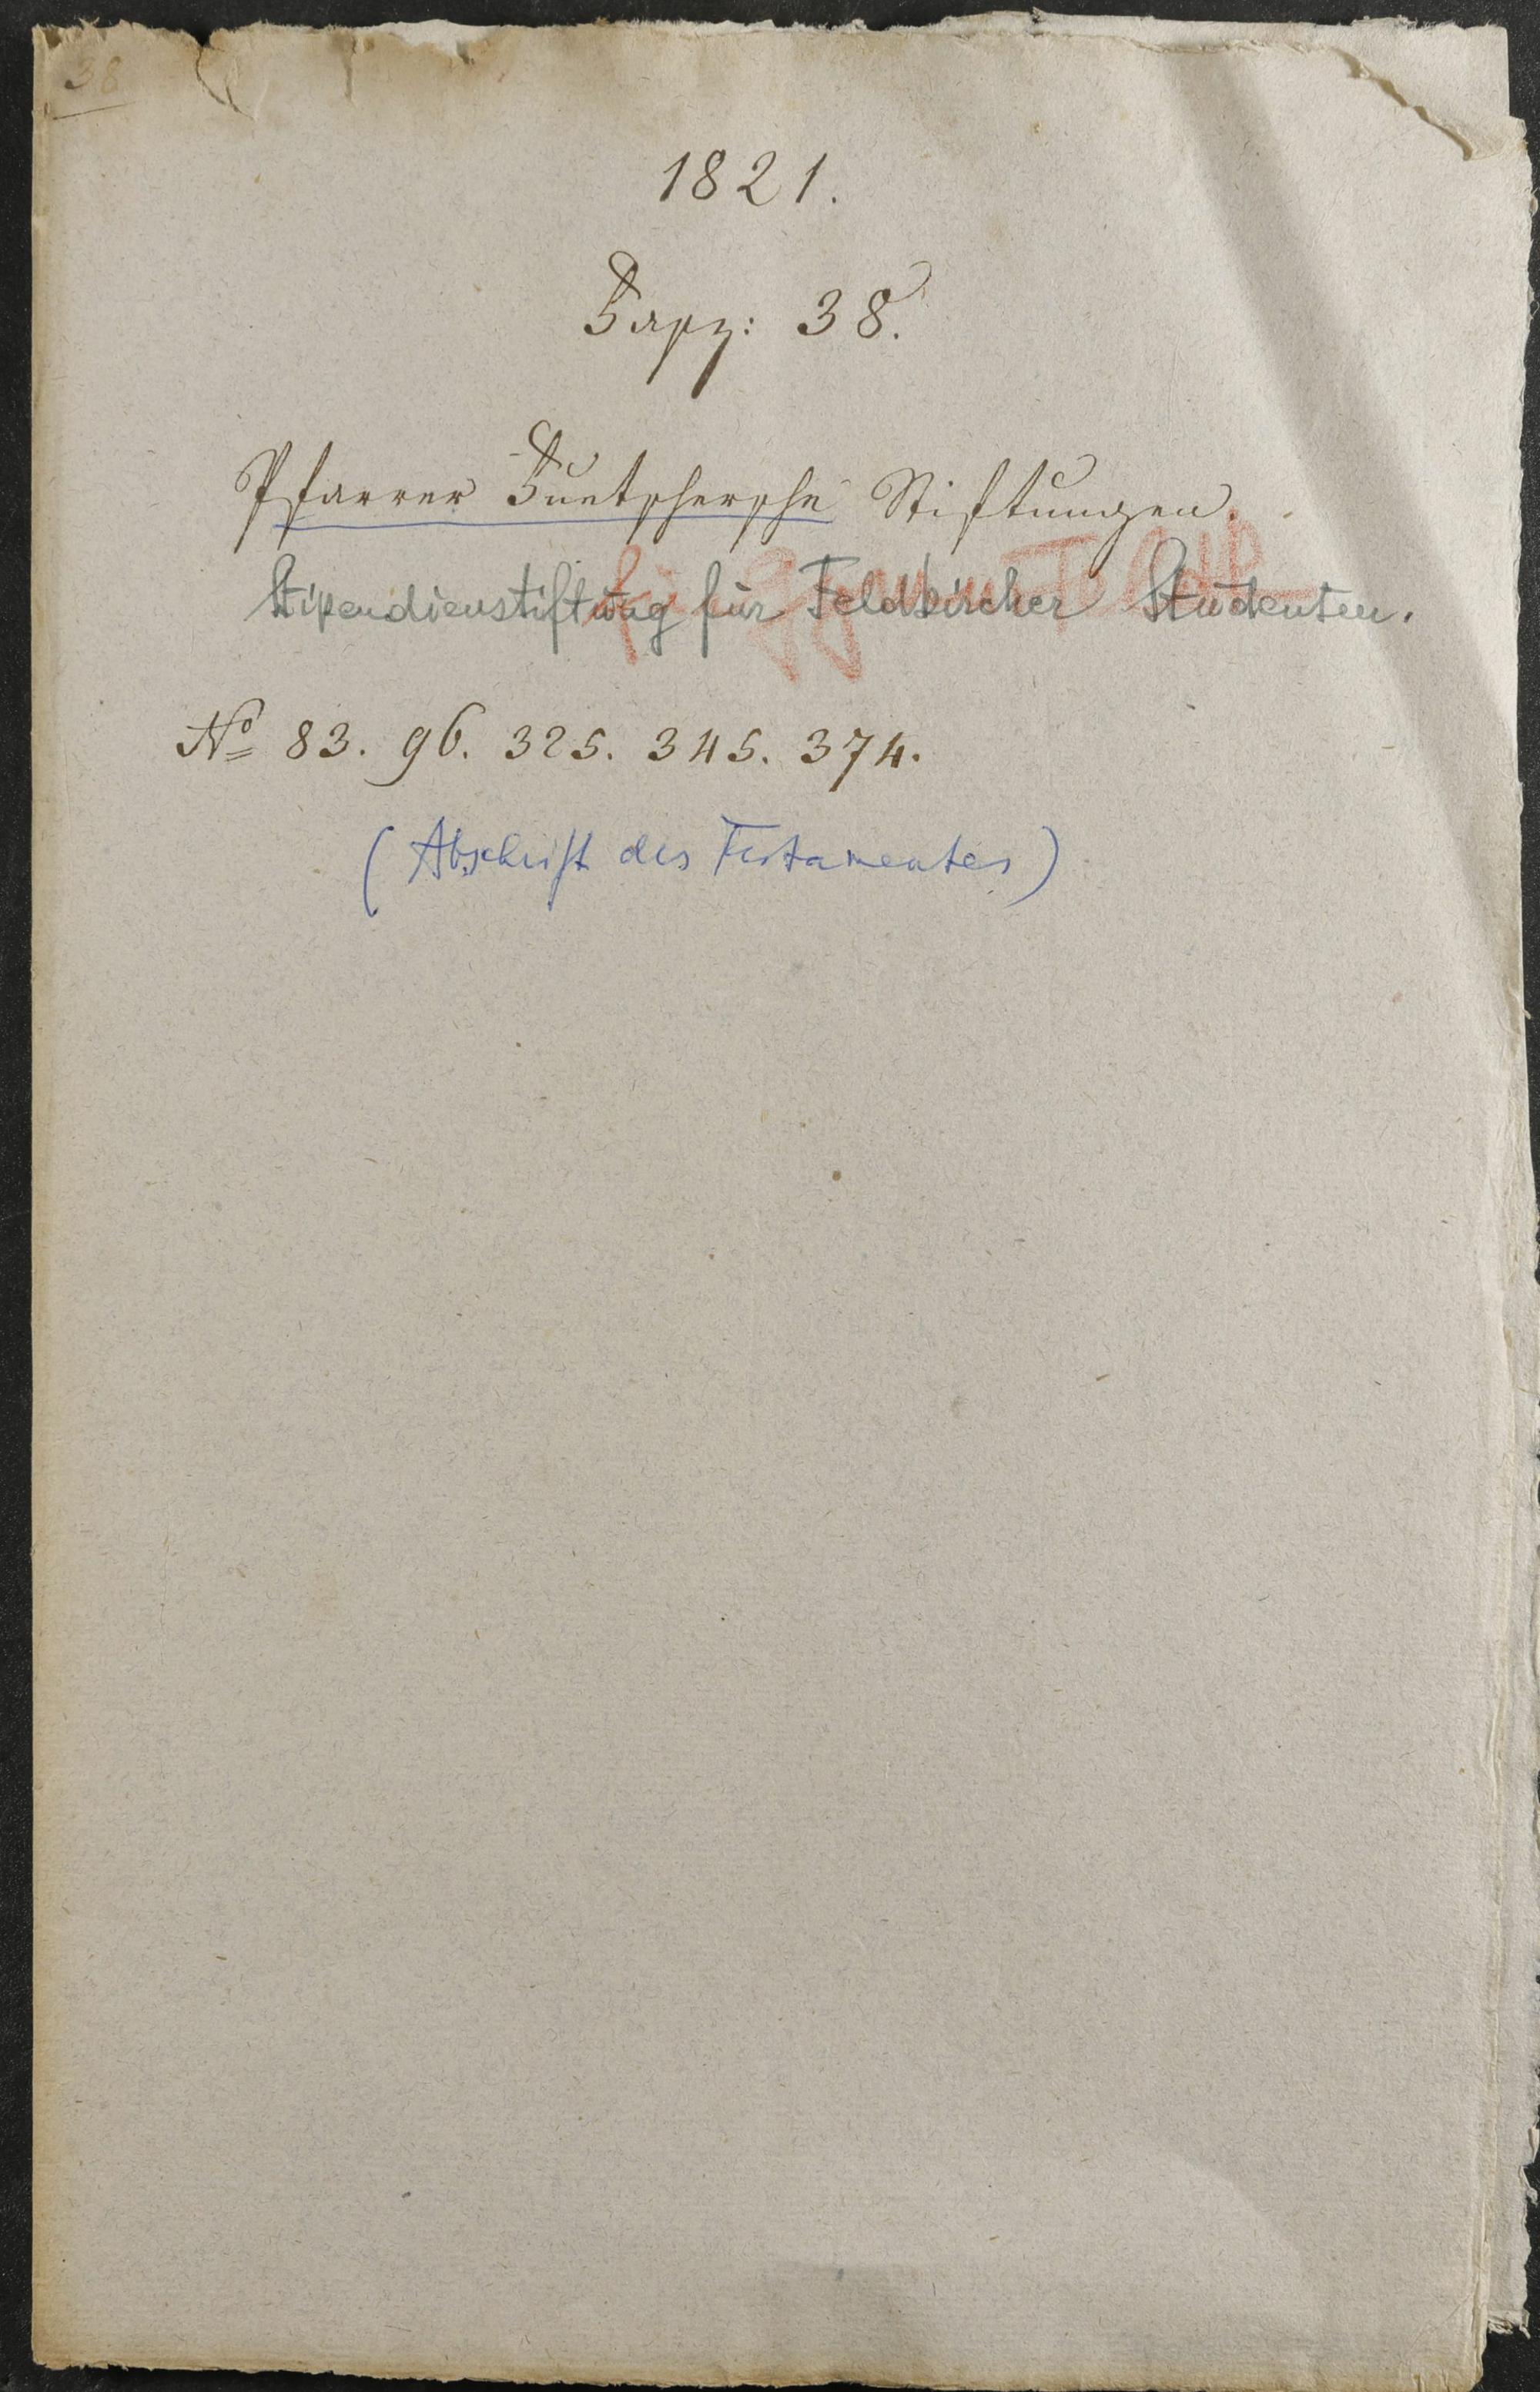 38
1821.
Fasz: 38.
Pfarrer Fuetschersche Stiftungen.
Stipendienstiftung für Feldkircher Studenten.
No 83. 96. 325. 345. 374.
(Abschrift des Testamentes)